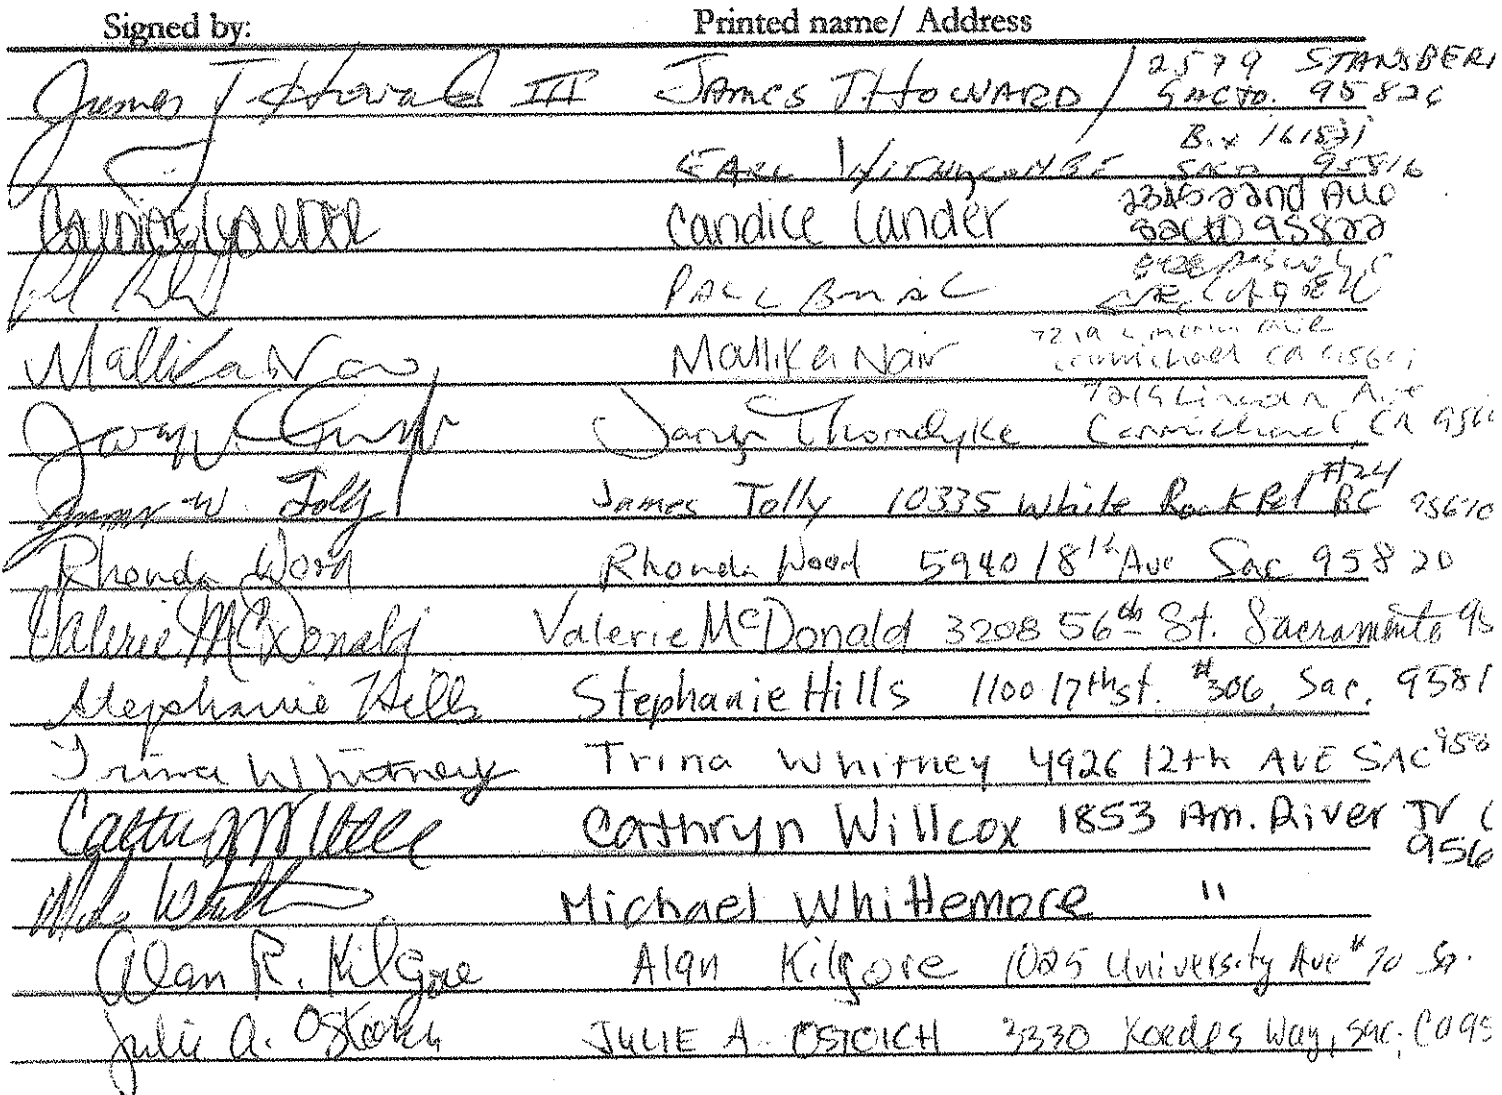 Signed by: Printed name/ Address
James J. Howard III JAMES J. HOWARD / 2579 STANSBER
SACTO. 95826
Box 161831
EARL WITHYCOMBE SACTO 95816
Candice Lander Candice Lander 22nd Ave
Sacto 95822
PAUL
Mallika Nair Mallika Nair 7219 Lincoln Ave
Carmichael CA
7219 Lincoln Ave
Thorndyke Carmichael, CA 956
James W. Tolly James Tolly 10335 White Rock Rd #24 RC 95670
Rhonda Wood Rhonda Wood 5940 18th Ave Sac 95820
Valerie McDonald Valerie McDonald 3208 56th St. Sacramento 95
Stephanie Hills Stephanie Hills 1100 17th St. #306, Sac. 9581
Trina Whitney Trina Whitney 4926 12th AVE SAC 958
Cathryn Willcox 1853 Am. River Dr C
956
Michael Whittemore "
Alan R. Kilgore Alan Kilgore 1025 University Ave #70
Julie A. Ostoich JULIE A. OSTOICH 3330 Way, Sac, CA 95